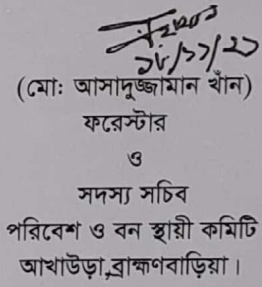 ২৮/১১/২১
(মোঃ আসাদুজ্জামান খাঁন)
ফরেস্টার
ও
সদস্য সচিব
পরিবেশ ও বন স্থায়ী কমিটি
আখাউড়া,ব্রাহ্মণবাড়িয়া।